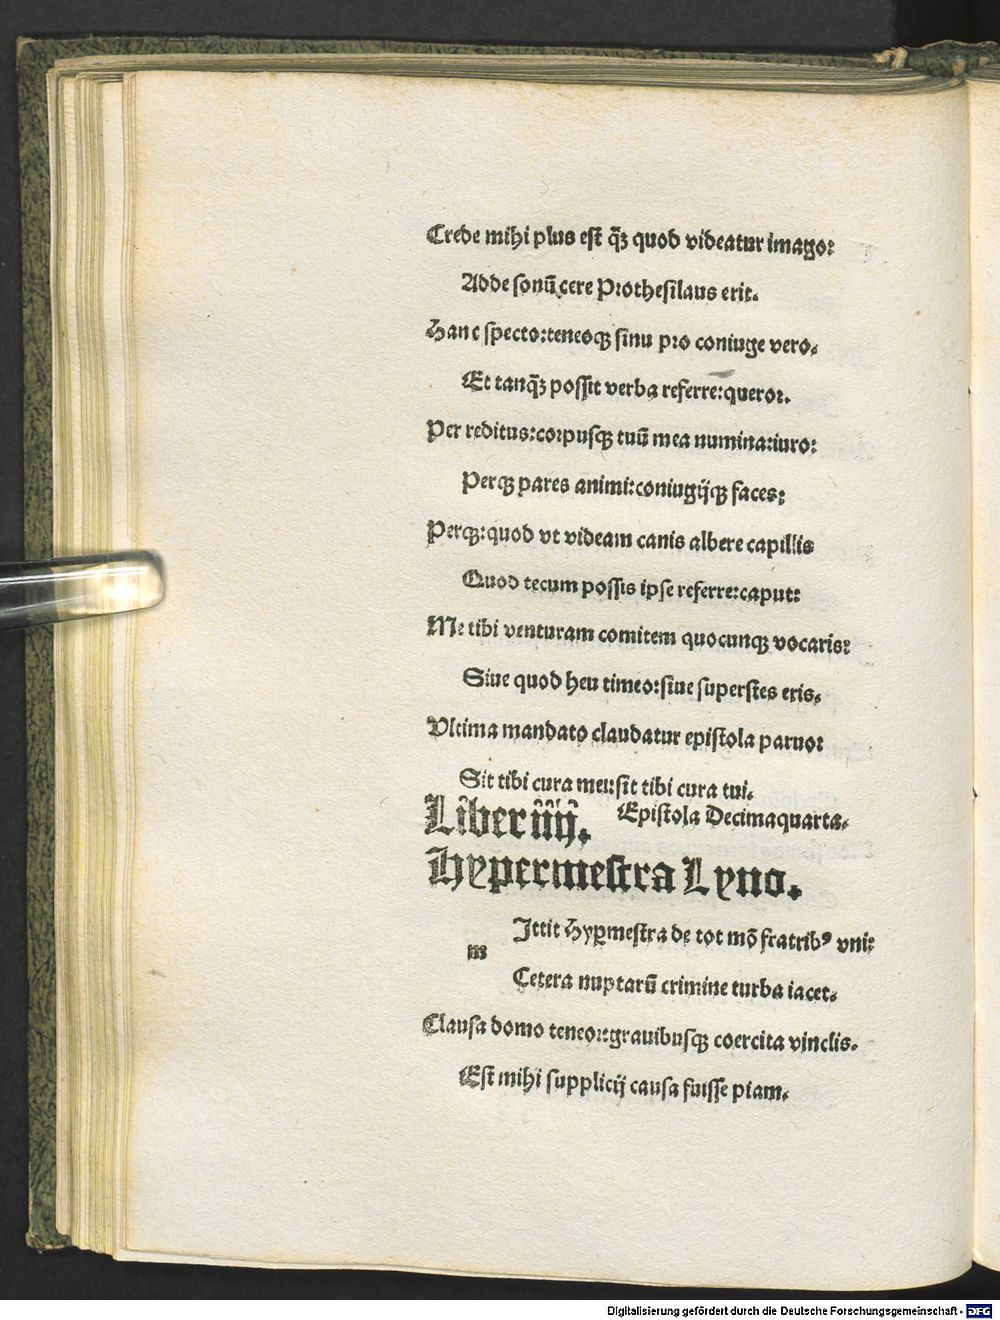 Crede mihi plus est q̃ꝫ quod videatur imago:
Adde sonū cere Prothesilaus erit.
Hanc specto: teneoqꝫ sinu pro coniuge vero.
Et tanq̃ꝫ possit verba referre: queror.
Per reditus: corpusqꝫ tuū mea numina: iuro:
Perqꝫ pares animi: coniugijqꝫ faces:
Perqꝫ: quod vt videam canis albere capillis
Quod tecum possis ipse referre: caput:
Me tibi venturam comitem quocunqꝫ vocaris:
Siue quod heu timeo: siue superstes eris.
Vltima mandato claudatur epistola paruo:
Sit tibi cura mei: sit tibi cura tui.
Liber iiij. Epistola Decimaquarta.
Hypermestra Lyno.
m Ittit Hyꝑmestra de tot mō fratribꝰ vni:
Cetera nuptarū crimine turba iacet.
Clausa domo teneor: grauibusqꝫ coercita vinclis.
Est mihi supplicij causa fuisse piam.
Digitalisierung gefördert durch die Deutsche Forschungsgemeinschaft - DFG